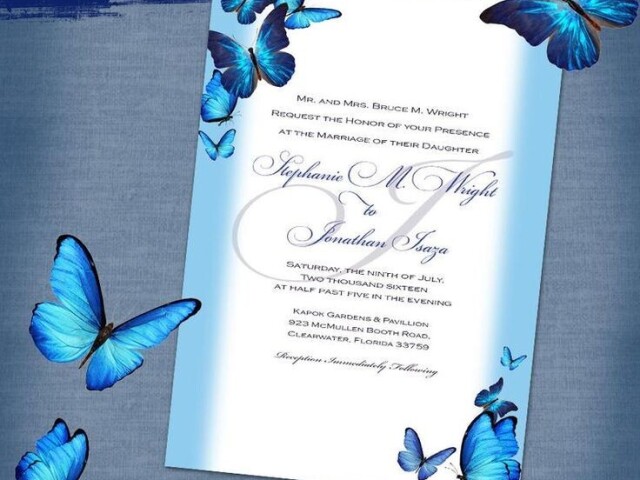 Mr. and Mrs. Bruce M. Wright
Request the Honor of your Presence
at the Marriage of their Daughter
Stephanie M. Wright
to
Jonathan Isaza
I
Saturday, the ninth of July,
Two thousand sixteen
at half past five in the evening
Kapok Gardens & Pavilion
923 McMullen Booth Road,
Clearwater, Florida 33759
Reception Immediately Following